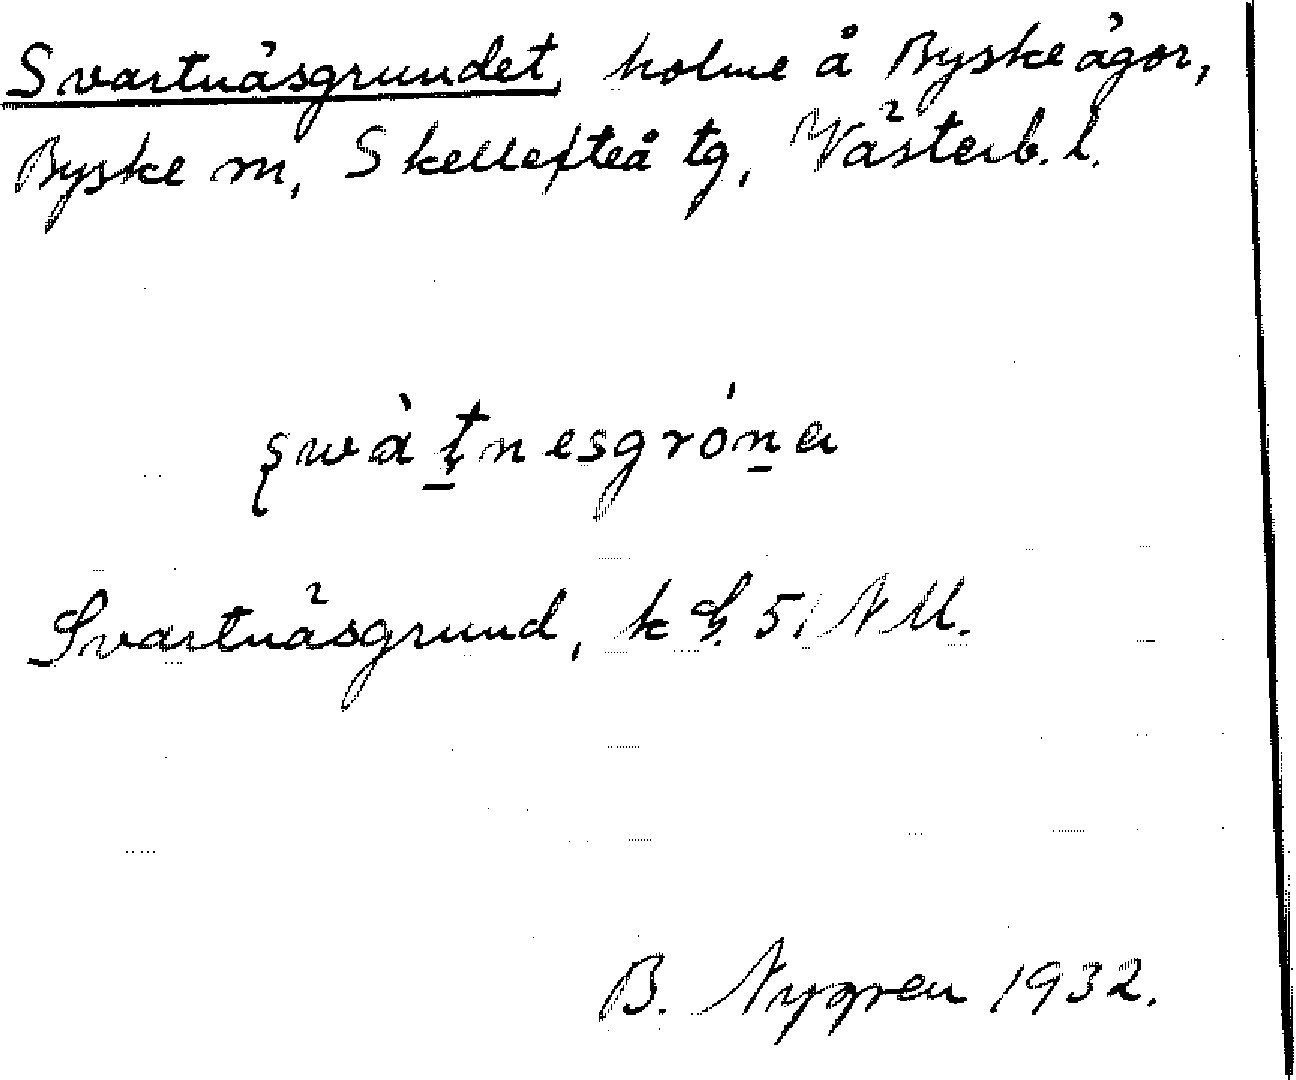 Svartnäsgrundet, holme å Byske ägor,
Byske sn, Skellefteå tg, Västerb. l.
swàtnesgróna
Svartnäsgrund, k 51 NU.
B. Nygren 1932.